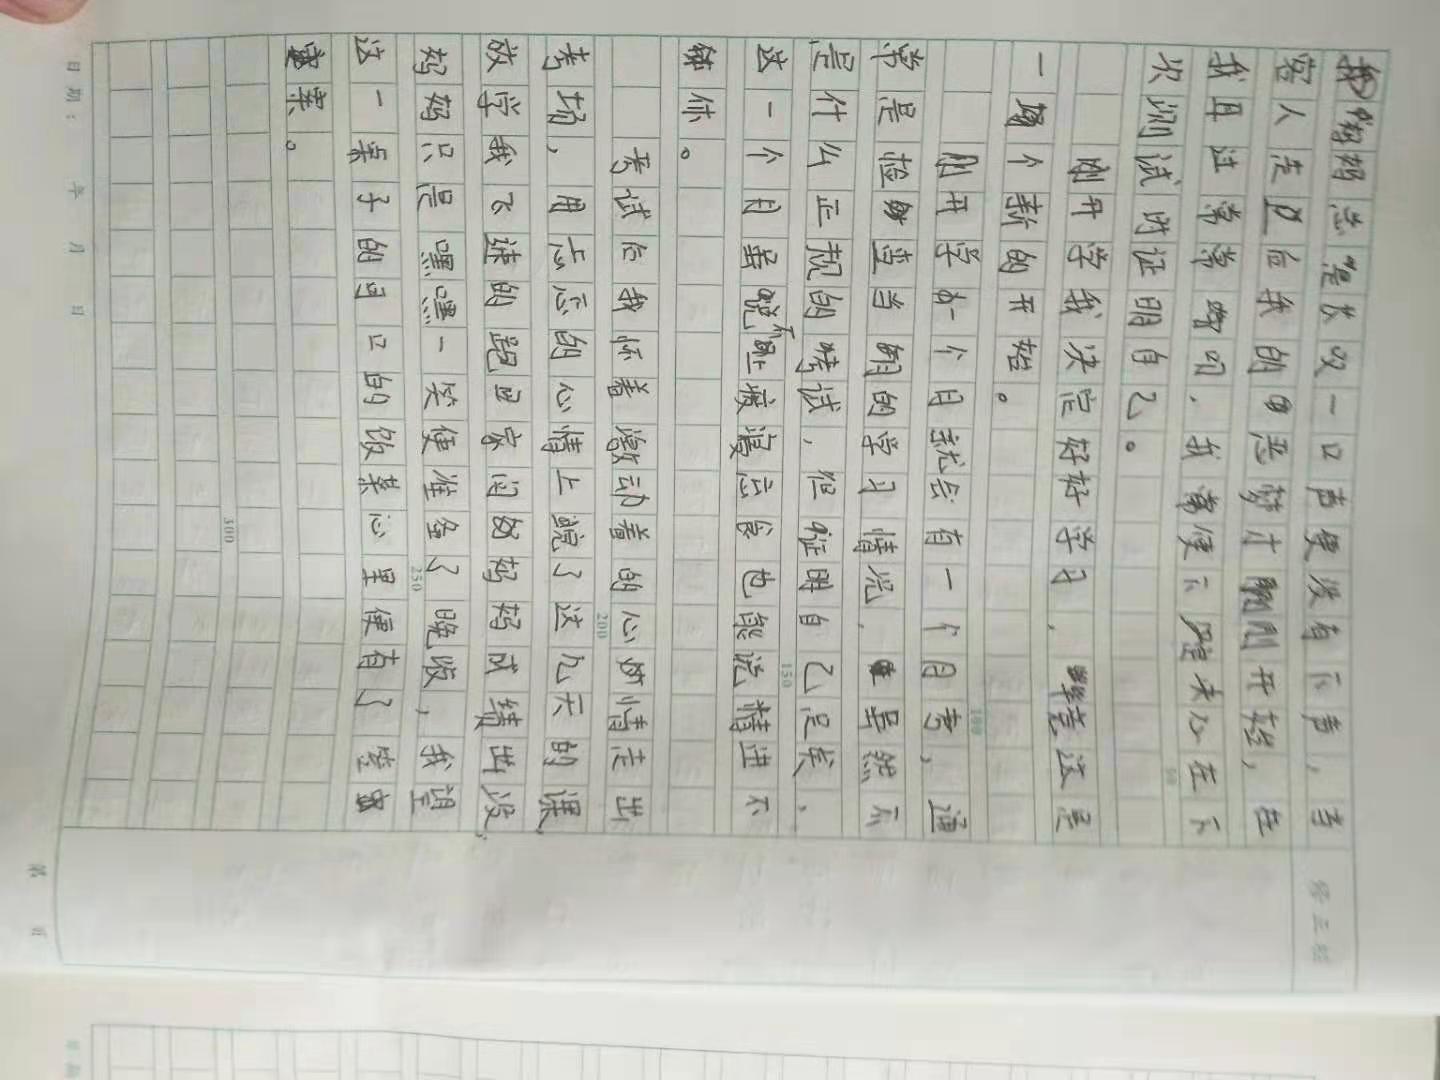 妈妈总是长叹一口声便没有下声，当
客人走后我的恶梦才刚刚开始，在
我耳边常常唠叨，我便下定决心在下
次测试时证明自己。
刚开学我决定好好学习，毕竟这是
一个新的开始。
刚开学有一个月就会有一个月考，通
常是检查当月的学习情况，虽然不
是什么正规的考试，但征明自己足矣，
这一个月虽说不寝忘食也能说精进不
休。
考试后我怀着激动着的心情走出
考场，用忐忑的心情上完了这几天的课，
放学我飞速的跑回家问妈妈成绩出没，
妈妈只是嘿嘿一笑便准备了晚饭，我望
这一桌子的可口的饭菜心里便有了答
案。
50
100
150
200
250
300
日期： 年 月 日
第 页